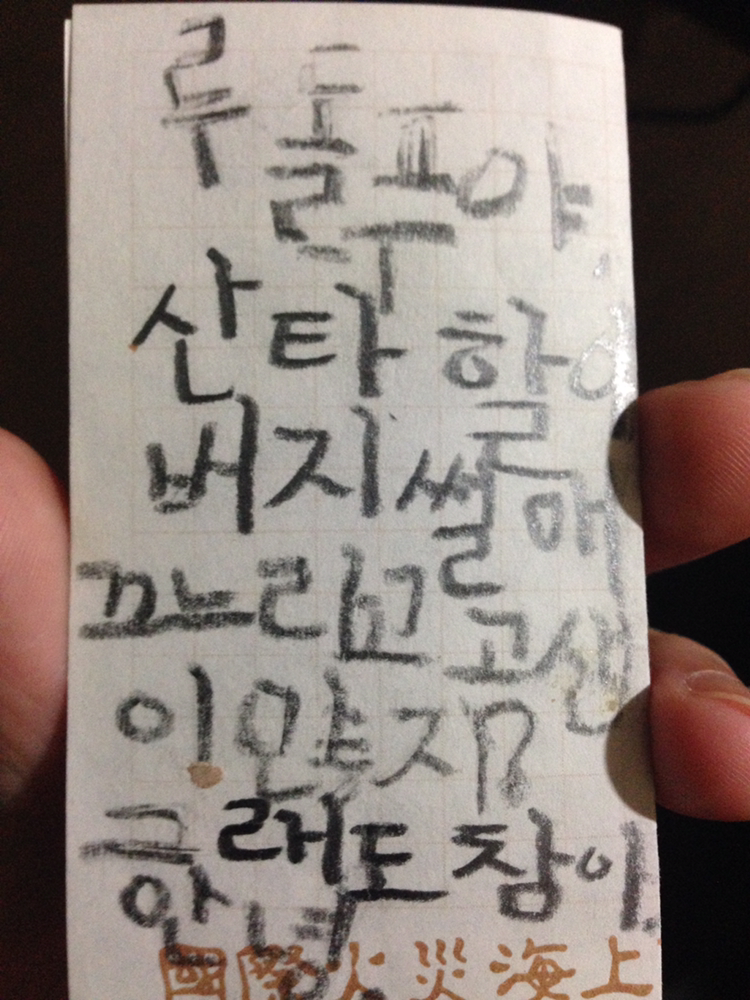 루돌푸야,
산타 할아
버지 썰매
끄느리고 고생
이 많지?
그래도 참아.
안녕
國際火災海上